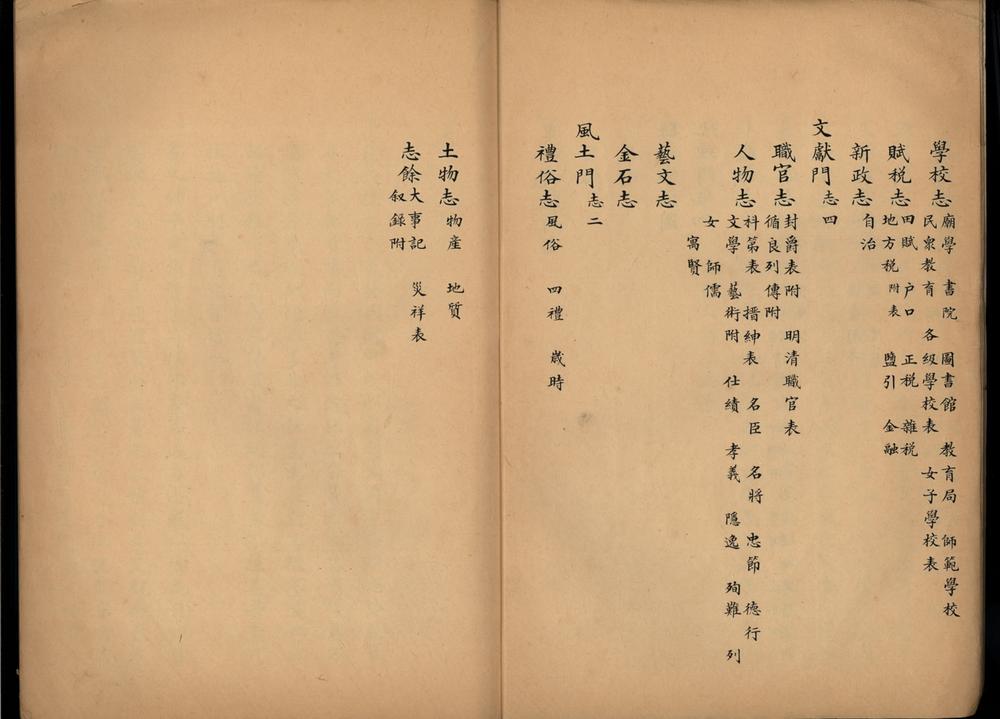 學校志 廟學 書院 圖書館 教育局 師範學校
民衆教育 各級學校表 女子學校表
賦税志 田賦 户口 正税 雜税
地方税附表 鹽引 金融
新政志 自治
文獻門 志四
職官志 封爵表附 明清職官表
循良列傳附
人物志 科第表 搢紳表 名臣 名將 忠節 德行
文學 藝術附 仕績 孝義 隱逸 殉難 列
女 師儒
寓賢
藝文志
金石志
風土門 志二
禮俗志 風俗 四禮 歲時
土物志 物産 地質
志餘 大事記 災祥表
叙録附